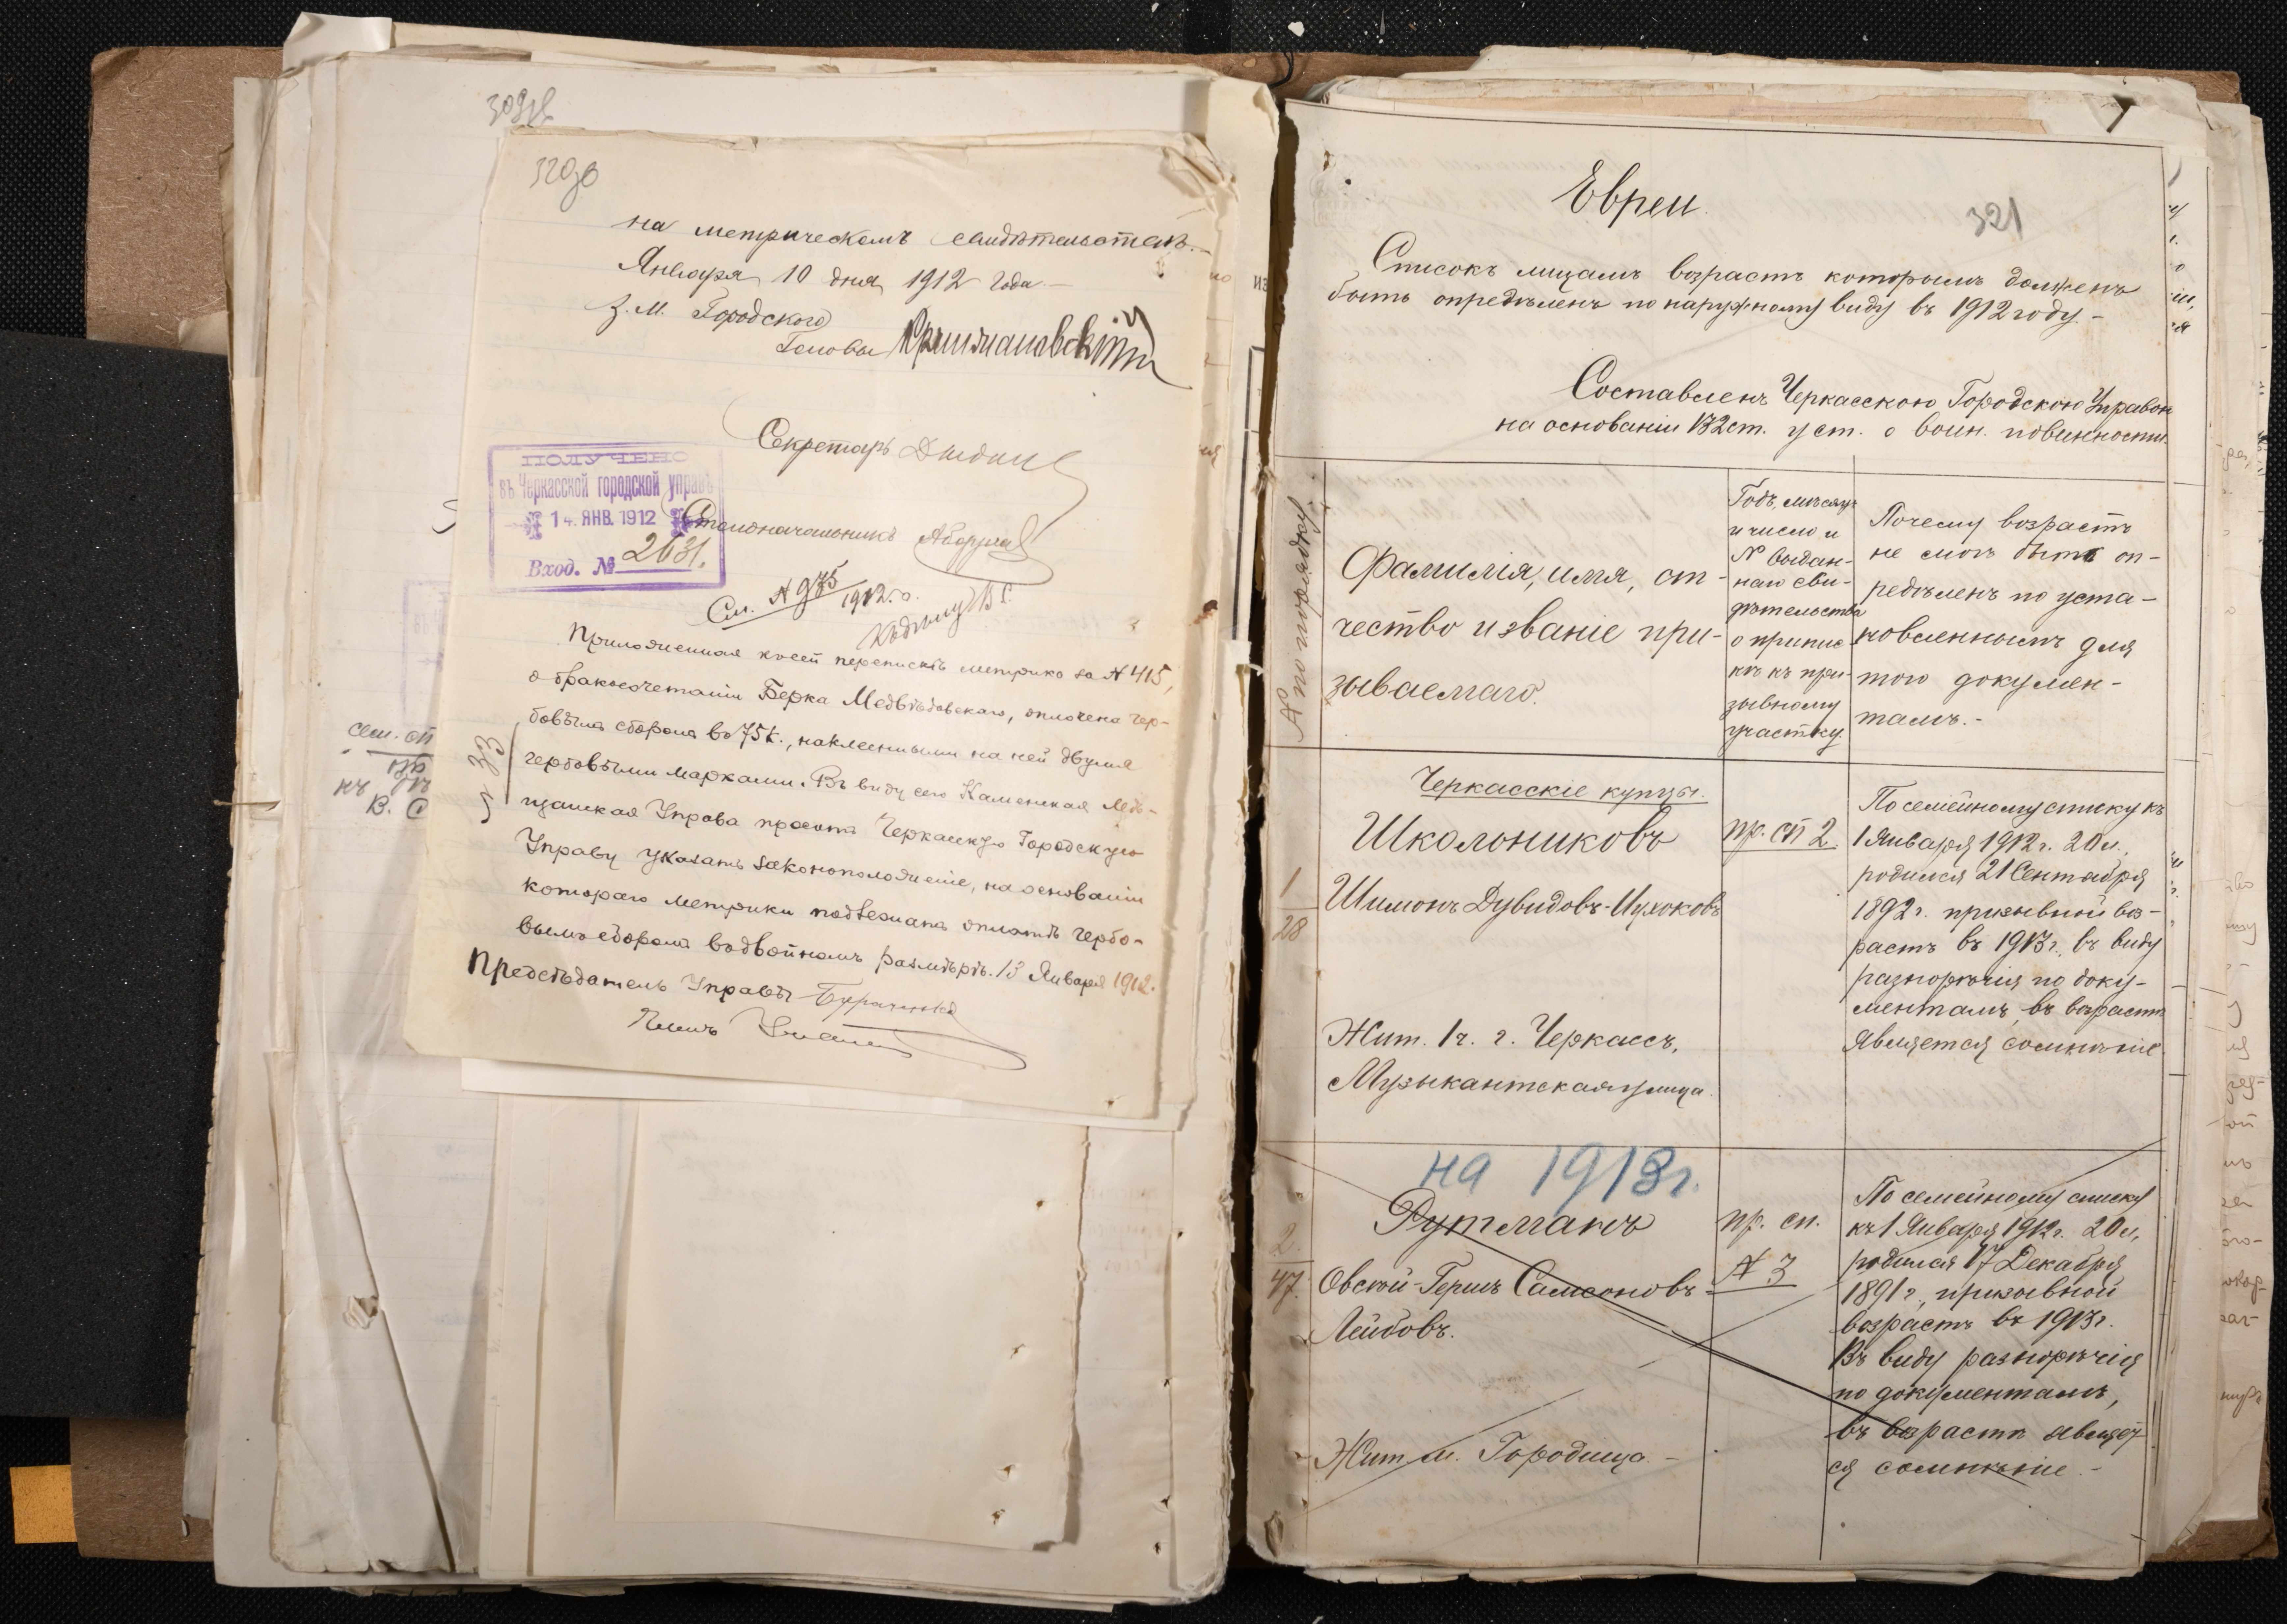 320об
на метрическомъ свидѣтельствѣ.
Января 10 дня 1912 года.
З. М. Городского
Головы
Секретарь
ПОЛУЧЕНО
въ Черкасской городской управѣ
14 ЯНВ. 1912
Вход. № 2631.
Столоначальникъ
См. № 975
1912 г.
Приложенная к сей перепискѣ метрика за № 415,
о бракосочетаніи Берка Медвѣдовскаго, оплочена гер-
бовымъ сборомъ въ 75 к., наклеенными на ней двумя
гербовыми марками. Въ виду сего Каменская Мѣ-
щанская Управа проситъ Черкасскую Городскую
Управу указать законоположеніе, на основаніи
котораго метрики подлежатъ оплатѣ гербо-
вымъ сборомъ въ двойномъ размѣрѣ. 13 Января 1912.
Предсѣдатель Управы
Членъ
Евреи.
321
Списокъ лицамъ возрастъ которымъ долженъ
быть опредѣленъ по наружному виду въ 1912 году.-
Составленъ Черкасскою Городскою Управою
на основаніи 132 ст. уст. о воин. повинности.
№ по порядку.
Фамилія, имя, от-
чество и званіе при-
зываемаго.
Годъ, мѣсяцъ
и число и
№ выдан-
наго сви-
дѣтельства
о припис
кѣ къ при-
зывному
участку
Почему возрастъ
не могъ быть оп-
редѣленъ по уста-
новленнымъ для
того докумен-
тамъ.-
Черкасскіе купцы.
1
28
Школьниковъ
Шимонъ Дувидовъ-Ицковъ
Жит. 1 ч. г. Черкассъ,
Музыкантская улица.
пр. сп 2.
По семейному списку къ
1 Января 1912 г. 20 л.,
родился 21 Сентября
1892 г. призывной воз-
растъ въ 1913 г., въ виду
разнорѣчія по доку-
ментамъ, въ возрастѣ
является сомнѣніе
на 1913 г.
2
47.
Рутманъ
Овсей-Гершъ Самсоновъ-
Лейбовъ.
Жит. м. Городища.-
пр. сп.
№ 3
По семейному списку
къ 1 Января 1912 г. 20 л,
родился 17 Декабря
1891 г., призывной
возрастъ въ 1913 г.
Въ виду разнорѣчія
по документамъ,
въ возрастѣ являет
ся сомнѣніе.-